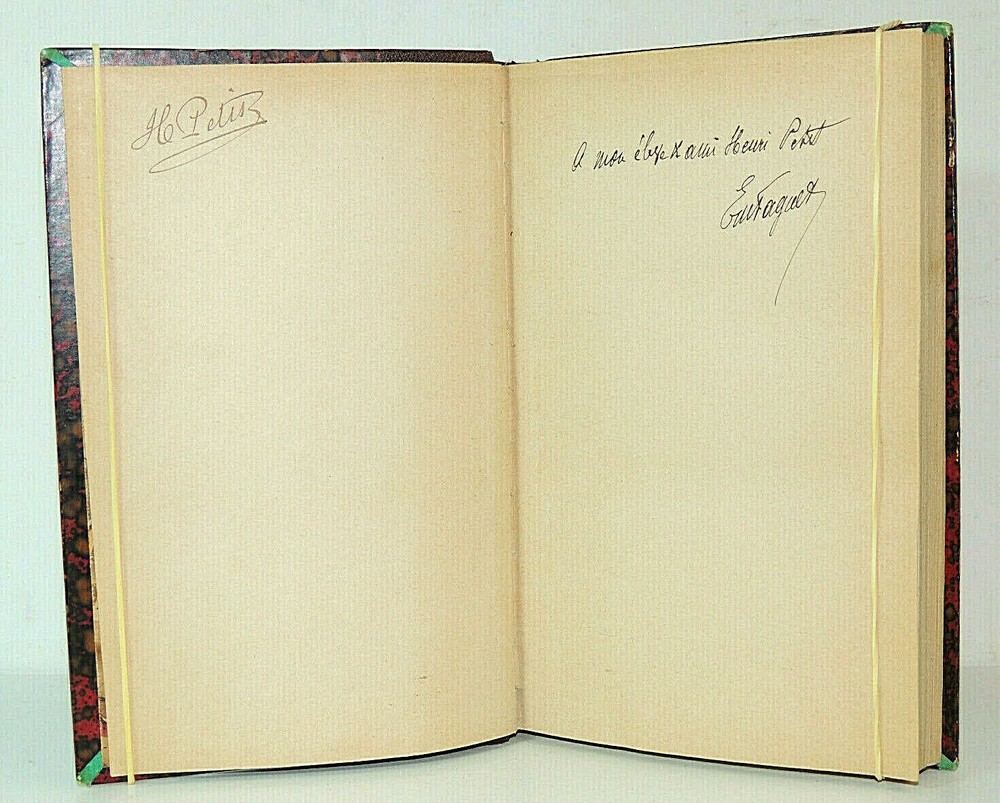 H Petit
A mon élève & ami Henri Petit
Em Faguet